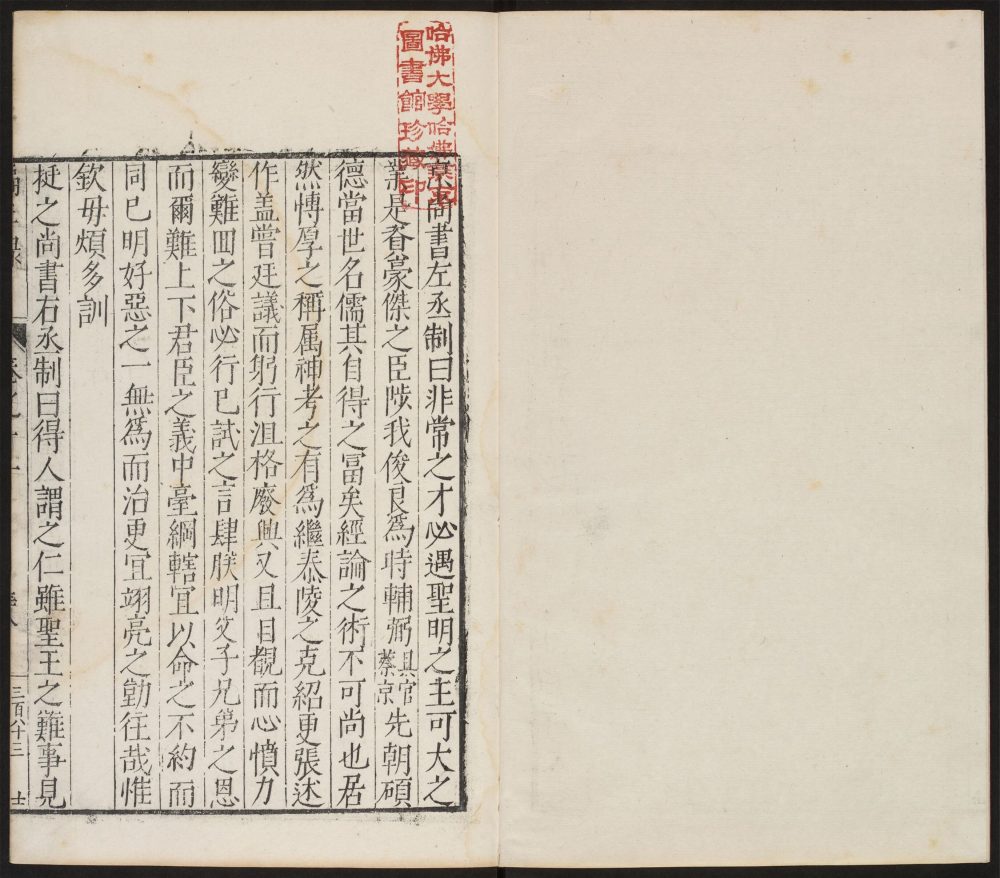 哈佛大學哈佛燕京
圖書館珍藏印
京尚書左丞制曰非常之才必遇聖明之主可大之
業是眘豪傑之臣陟我俊良爲時輔弼具官蔡京先朝碩
德當世名儒其自得之冨矣經論之術不可尚也居
然愽厚之稱属神考之有爲繼泰陵之克紹更張述
作盖嘗廷議而躬行沮格廢興又且目覩而心憤力
變難囬之俗必行已試之言肆朕明父子兄弟之恩
而爾難上下君臣之義中臺綱轄冝以命之不約而
同已明好惡之一無爲而治更冝翊亮之勤往哉惟
欽毋煩多訓
挺之尚書右丞制曰得人謂之仁雖聖王之難事見
卷之十一
三百八十三